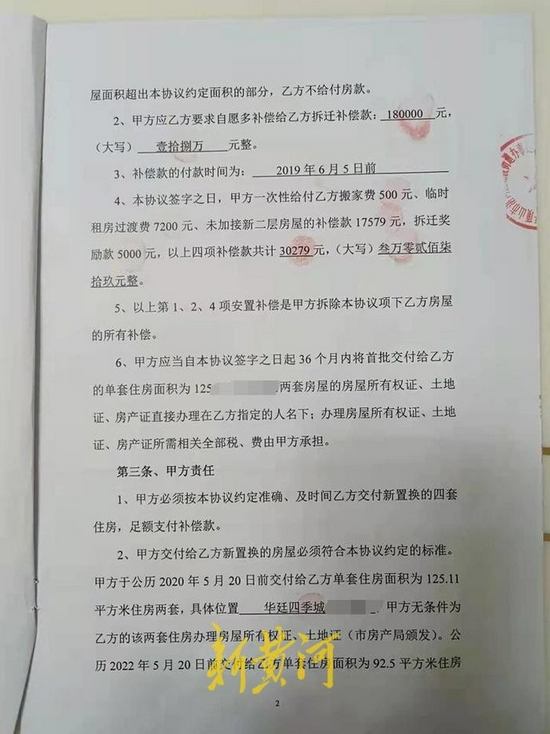 屋面积超出本协议约定面积的部分，乙方不给付房款。
2、甲方应乙方要求自愿多补偿给乙方拆迁补偿款：180000 元，
（大写） 壹拾捌万 元整。
3、补偿款的付款时间为： 2019 年 6 月 5 日前
4、本协议签字之日，甲方一次性给付乙方搬家费 500 元、临时
租房过渡费 7200 元、未加接新二层房屋的补偿款 17579 元，拆迁奖
励款 5000 元，以上四项补偿款共计 30279 元，（大写）叁万零贰佰柒
拾玖元整。
5、以上第 1、2、4 项安置补偿是甲方拆除本协议项下乙方房屋
的所有补偿。
6、甲方应当自本协议签字之日起 36 个月内将首批交付给乙方
的单套住房面积为 125 两套房屋的房屋所有权证、土地
证、房产证直接办理在乙方指定的人名下；办理房屋所有权证、土地
证、房产证所需相关全部税、费由甲方承担。
第三条、甲方责任
1、甲方必须按本协议约定准确、及时间乙方交付新置换的四套
住房，足额支付补偿款。
2、甲方交付给乙方新置换的房屋必须符合本协议约定的标准。
甲方于公历 2020 年 5 月 20 日前交付给乙方单套住房面积为 125.11
平方米住房两套，具体位置 华廷四季城 甲方无条件为
乙方的该两套住房办理房屋所有权证、土地证（市房产局颁发）。公
历 2022 年 5 月 20 日前交付给乙方单套住房面积为 92.5 平方米住房
新黄河
2